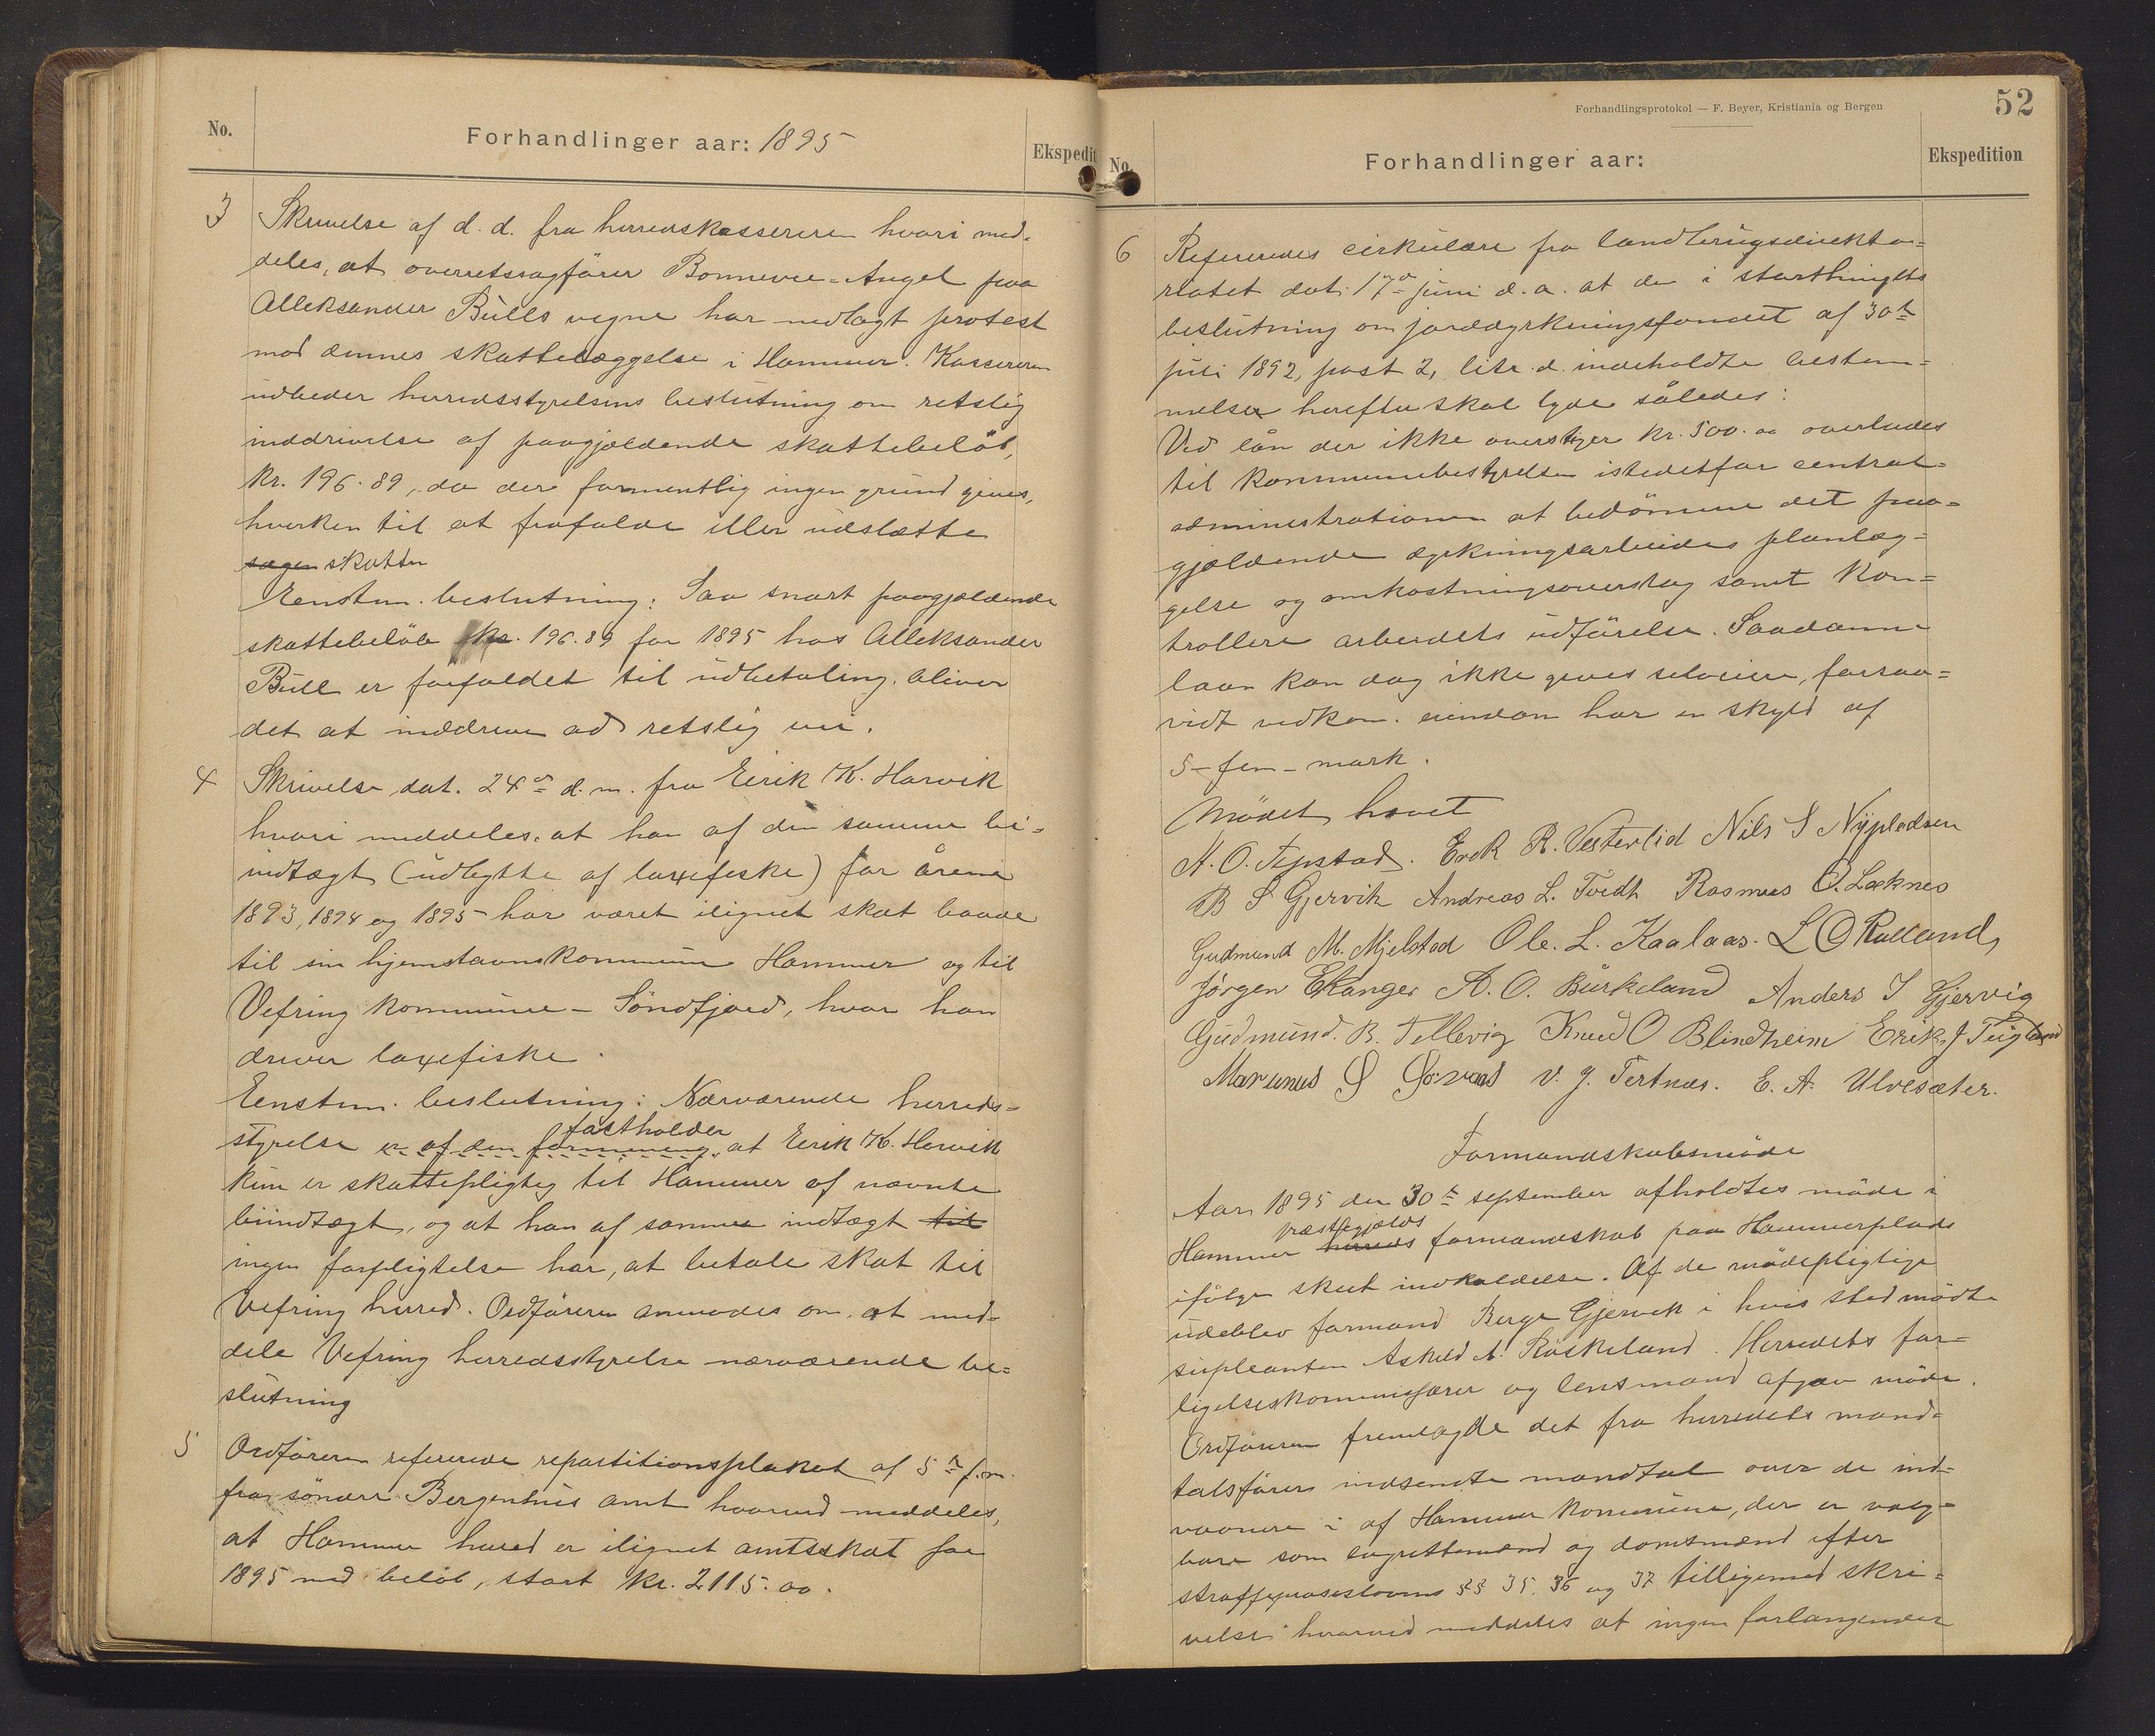 No.
Forhandlinger aar: 1895
Ekspedit
3 Skrivelse af d. d. fra herredskassereren hvori med-
deles, at overretssagfører Bonnevie-Angel paa
Alleksander Bulls vegne har nedlagt protest
mod dennes skattelæggelse i Hammer. Kassereren
udbeder herredsstyrelsens beslutning om retslig
inddrivelse af paagjældende skattebeløb,
kr. 196.89, da der formentlig ingen grund gives,
hverken til at frafalde eller udslætte
sagen skatten
Eenstem. beslutning: Saa snart paagjældende
skattebeløb kr. 196.89 for 1895 hos Alleksander
Bull er forfaldet til udbetaling, bliver
det at inddrive ad retslig vei.
4 Skrivelse dat. 24de d. m. fra Eirik K. Horvik
hvori meddeles, at han af den samme bi-
indtægt (udbytte af laxefiske) for årene
1893, 1894 og 1895 har været ilignet skat baade
til sin hjemstavnskommune Hammer og til
Vefring kommune - Söndfjord, hvor han
driver laxefiske.
Eenstem. beslutning: Nærværende herreds-
fastholder
styrelse er af den formening, at Eirik K. Horvik
kun er skattepligtig til Hammer af nævnte
biindtægt, og at han af samme indtægt til
ingen forpligtelse har, at betale skat til
Vefring herred. Ordføreren anmodes om, at med-
dele Vefring herredsstyrelse nærværende be-
slutning
5 Ordføreren refererede repartitionsplakat af 5te f. m.
fra søndre Bergenhus amt hvorved meddeles,
at Hammer herred er ilignet amtsskat for
1895 med beløb, stort kr. 2115.00.
Forhandlingsprotokol — F. Beyer, Kristiania og Bergen
52
No.
Forhandlinger aar:
Ekspedition
6 Refereredes cirkulære fra landbrugsdirekto-
ratet dat. 17de juni d. a. at den i storthingets
beslutning om jorddyrkningsfondet af 30te
juli 1892, post 2, litr. d. indeholdte bestem-
melse herefter skal lyde således:
Ved lån der ikke overstiger kr. 500.00 overlades
til kommunebestyrelsen istedetfor central-
administrationen at bedømme det paa-
gjældende dyrkningsarbeides planlæg-
gelse og omkostningsoverslag samt kon-
trollere arbeidets udførelse. Saadanne
laan kan dog ikke gives selveiere, forsaa-
vidt vedkom. eiendom har en skyld af
5 - fem - mark.
Mödet hævet
A. O. Tepstad. Erik R. Vesterlid Nils S Nypledsen
B S Gjervik Andreas L. Tvedt Rasmus O. Løknes
Gudmund M. Mjelstad Ole. L. Kaalaas. L O Ralland,
Jörgen Ekanger A. O. Burkeland Anders I Gjervig
Gudmund. B. Tellevig Knud O Blindheim Erik J Teigland
Marunus S V. J. Tertnæs. E. A. Ulvesæter.
Formandskabsmøde
Aar 1895 den 30te september afholdtes møde i
præstegjælds
Hammer herreds formandskab paa Hammerplads
ifølge skeet indkaldelse. Af de mødepligtige
udeblev formand Berge Gjervik i hvis sted mødte
supleanten Askild A. Röskeland. Herredets for-
ligelseskommissærer og lensmand afgav møde.
Ordføreren fremlagde det fra herredets mand-
talsfører indsendte mandtal over de ind-
vaanere i af Hammer kommune, der er valg-
bare som lagrettemænd og domsmænd efter
straffeproseslovens §§ 35, 36 og 37 tilligemed skri-
velse hvorved meddeles at ingen forlangender